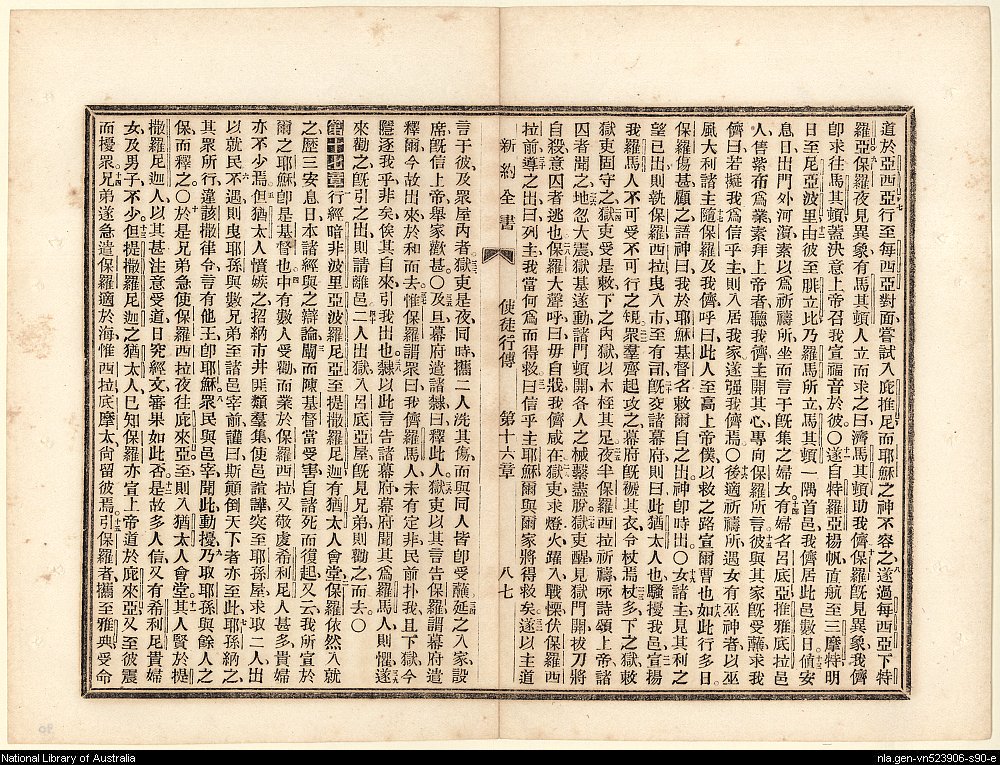 道於亞西亞行至每西亞對面嘗試入庇推尼而耶穌之神不容之遂過每西亞下特
羅亞保羅夜見異象有馬其頓人立而求之曰濟馬其頓助我儕保羅旣見異象我儕
卽求往馬其頓蓋決意上帝召我宣福音於彼〇遂自特羅亞揚帆直航至三摩特明
日至尼亞波里由彼至腓立比乃羅馬所立馬其頓一隅首邑我儕居此邑數日値安
息日出門外河濵素以爲祈禱所坐而言于旣集之婦女有婦名呂底亞推雅底拉邑
人售紫布爲業素拜上帝者聽我儕主開其心專向保羅所言彼與其家旣受蘸求我
儕曰若擬我爲信乎主則入居我家遂强我儕焉〇後適祈禱所遇女有巫神者以巫
風大利諸主隨保羅及我儕呼曰此人至高上帝僕以救之路宣爾曹也如此行多日
保羅傷甚顧之語神曰我於耶穌基督名敕爾自之出神卽時出〇女諸主見其利之
望已出則執保羅西拉曳入市至有司旣交諸幕府則曰此猶太人也騷擾我邑宣揚
我羅馬人不可受不可行之規衆羣齊起攻之幕府旣褫其衣令杖焉杖多下之獄敕
獄吏固守之獄吏受是敕下之內獄以木桎其足夜半保羅西拉祈禱咏詩頌上帝諸
囚者聞之地忽大震獄基遂動諸門頓開各人之械繫盡脫獄吏醒見獄門開拔刀將
自殺意囚者逃也保羅大聲呼曰毋自戕我儕咸在獄吏求燈火躍入戰慄伏保羅西
拉前導之出曰列主我當何爲而得救曰信乎主耶穌爾與爾家將得救矣遂以主道
新約全書 使徒行傳 第十六章 八七
言于彼及衆屋內者獄吏是夜同時攜二人洗其傷而與同人皆卽受蘸延之入家設
席旣信上帝舉家歡甚〇及旦幕府遣諸隸曰釋此人獄吏以其言告保羅謂幕府遣
釋爾今故出來於和而去惟保羅謂衆曰我儕羅馬人未有定非民前扑我且下獄今
隱逐我乎非矣俟其自來引我出也隸以此言告諸幕府幕府聞其爲羅馬人則懼遂
來勸之旣引之出則請離邑二人出獄入呂底亞屋旣見兄弟則勸之而去〇
第十七章行經暗非波里亞波羅尼亞至提撒羅尼迦有猶太人會堂保羅依然入就
之歷三安息日本諸經與之辯論闡而陳基督當受害自諸死而復起又云我所宣於
爾之耶穌卽是基督也中有數人受勸而業於保羅西拉又敬虔希利尼人甚多貴婦
亦不少焉但猶太人憤嫉之招納市井匪類羣集使邑諠譁突至耶孫屋求取二人出
以就民不遇則曳耶孫與數兄弟至諸邑宰前讙曰斯顚倒天下者亦至此耶孫納之
其衆所行違該撒律令言有他王卽耶穌衆民與邑宰聞此動擾乃取耶孫與餘人之
保而釋之〇於是兄弟急使保羅西拉夜往庇來亞至則入猶太人會堂其人賢於提
撒羅尼迦人以其甚注意受道日究經文審果如此否是故多人信又有希利尼貴婦
女及男子不少但提撒羅尼迦之猶太人已知保羅亦宣上帝道於庇來亞又至彼震
而擾衆兄弟遂急遣保羅適於海惟西拉底摩太尚留彼焉引保羅者攜至雅典受命
National Library of Australia
nla.gen-vn523906-s90-e